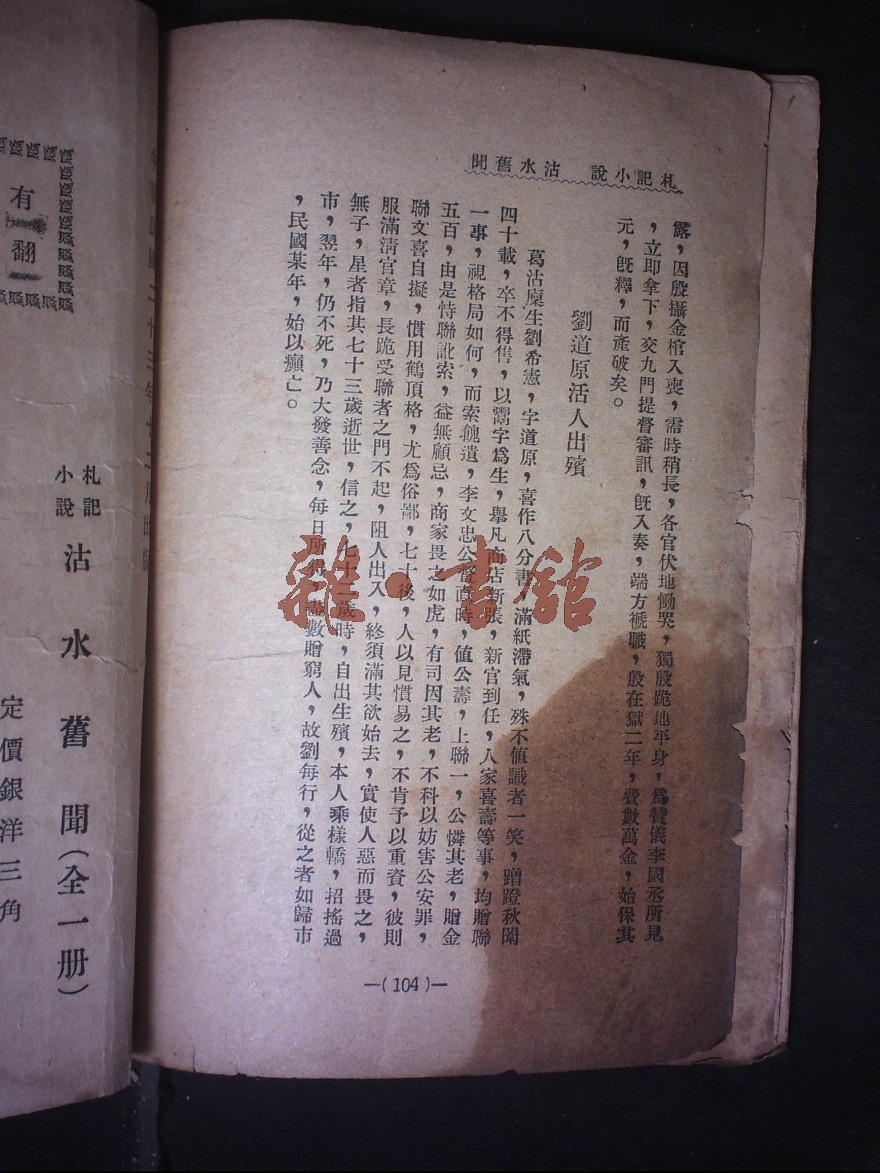 札記小說　沽水舊聞
露，因殷攝金棺入喪，需時稍長，各官伏地慟哭，獨殷跪地平身，爲贊儀李國丞所見
，立即拿下，交九門提督審訊，旣入奏，端方褫職，殷在獄二年，費數萬金，始保其
元，旣釋，而產破矣。
劉道原活人出殯
葛沽廩生劉希憲，字道原，喜作八分書，滿紙滯氣，殊不値識者一笑，蹭蹬秋闈
四十載，卒不得售，以鬻字爲生，舉凡商店新張，新官到任，人家喜壽等事，均贈聯
一事，視格局如何，而索餽遺，李文忠公督直時，値公壽，上聯一，公憐其老，贈金
五百，由是恃聯訛索，益無顧忌，商家畏之如虎，有司因其老，不科以妨害公安罪，
聯文喜自擬，慣用鶴頂格，尤爲俗鄙，七十後，人以見慣易之，不肯予以重資，彼則
服滿清官章，長跪受聯者之門不起，阻人出入，終須滿其欲始去，實使人惡而畏之，
無子，星者指其七十三歲逝世，信之，七十二歲時，自出生殯，本人乘樣轎，招搖過
市，翌年，仍不死，乃大發善念，每日所得，盡數贈窮人，故劉每行，從之者如歸市
，民國某年，始以癲亡。
—(104)—
有
翻
民國二十三年十二月出版
札記小說　沽水舊聞（全一册）
定價銀洋三角
雜·書館